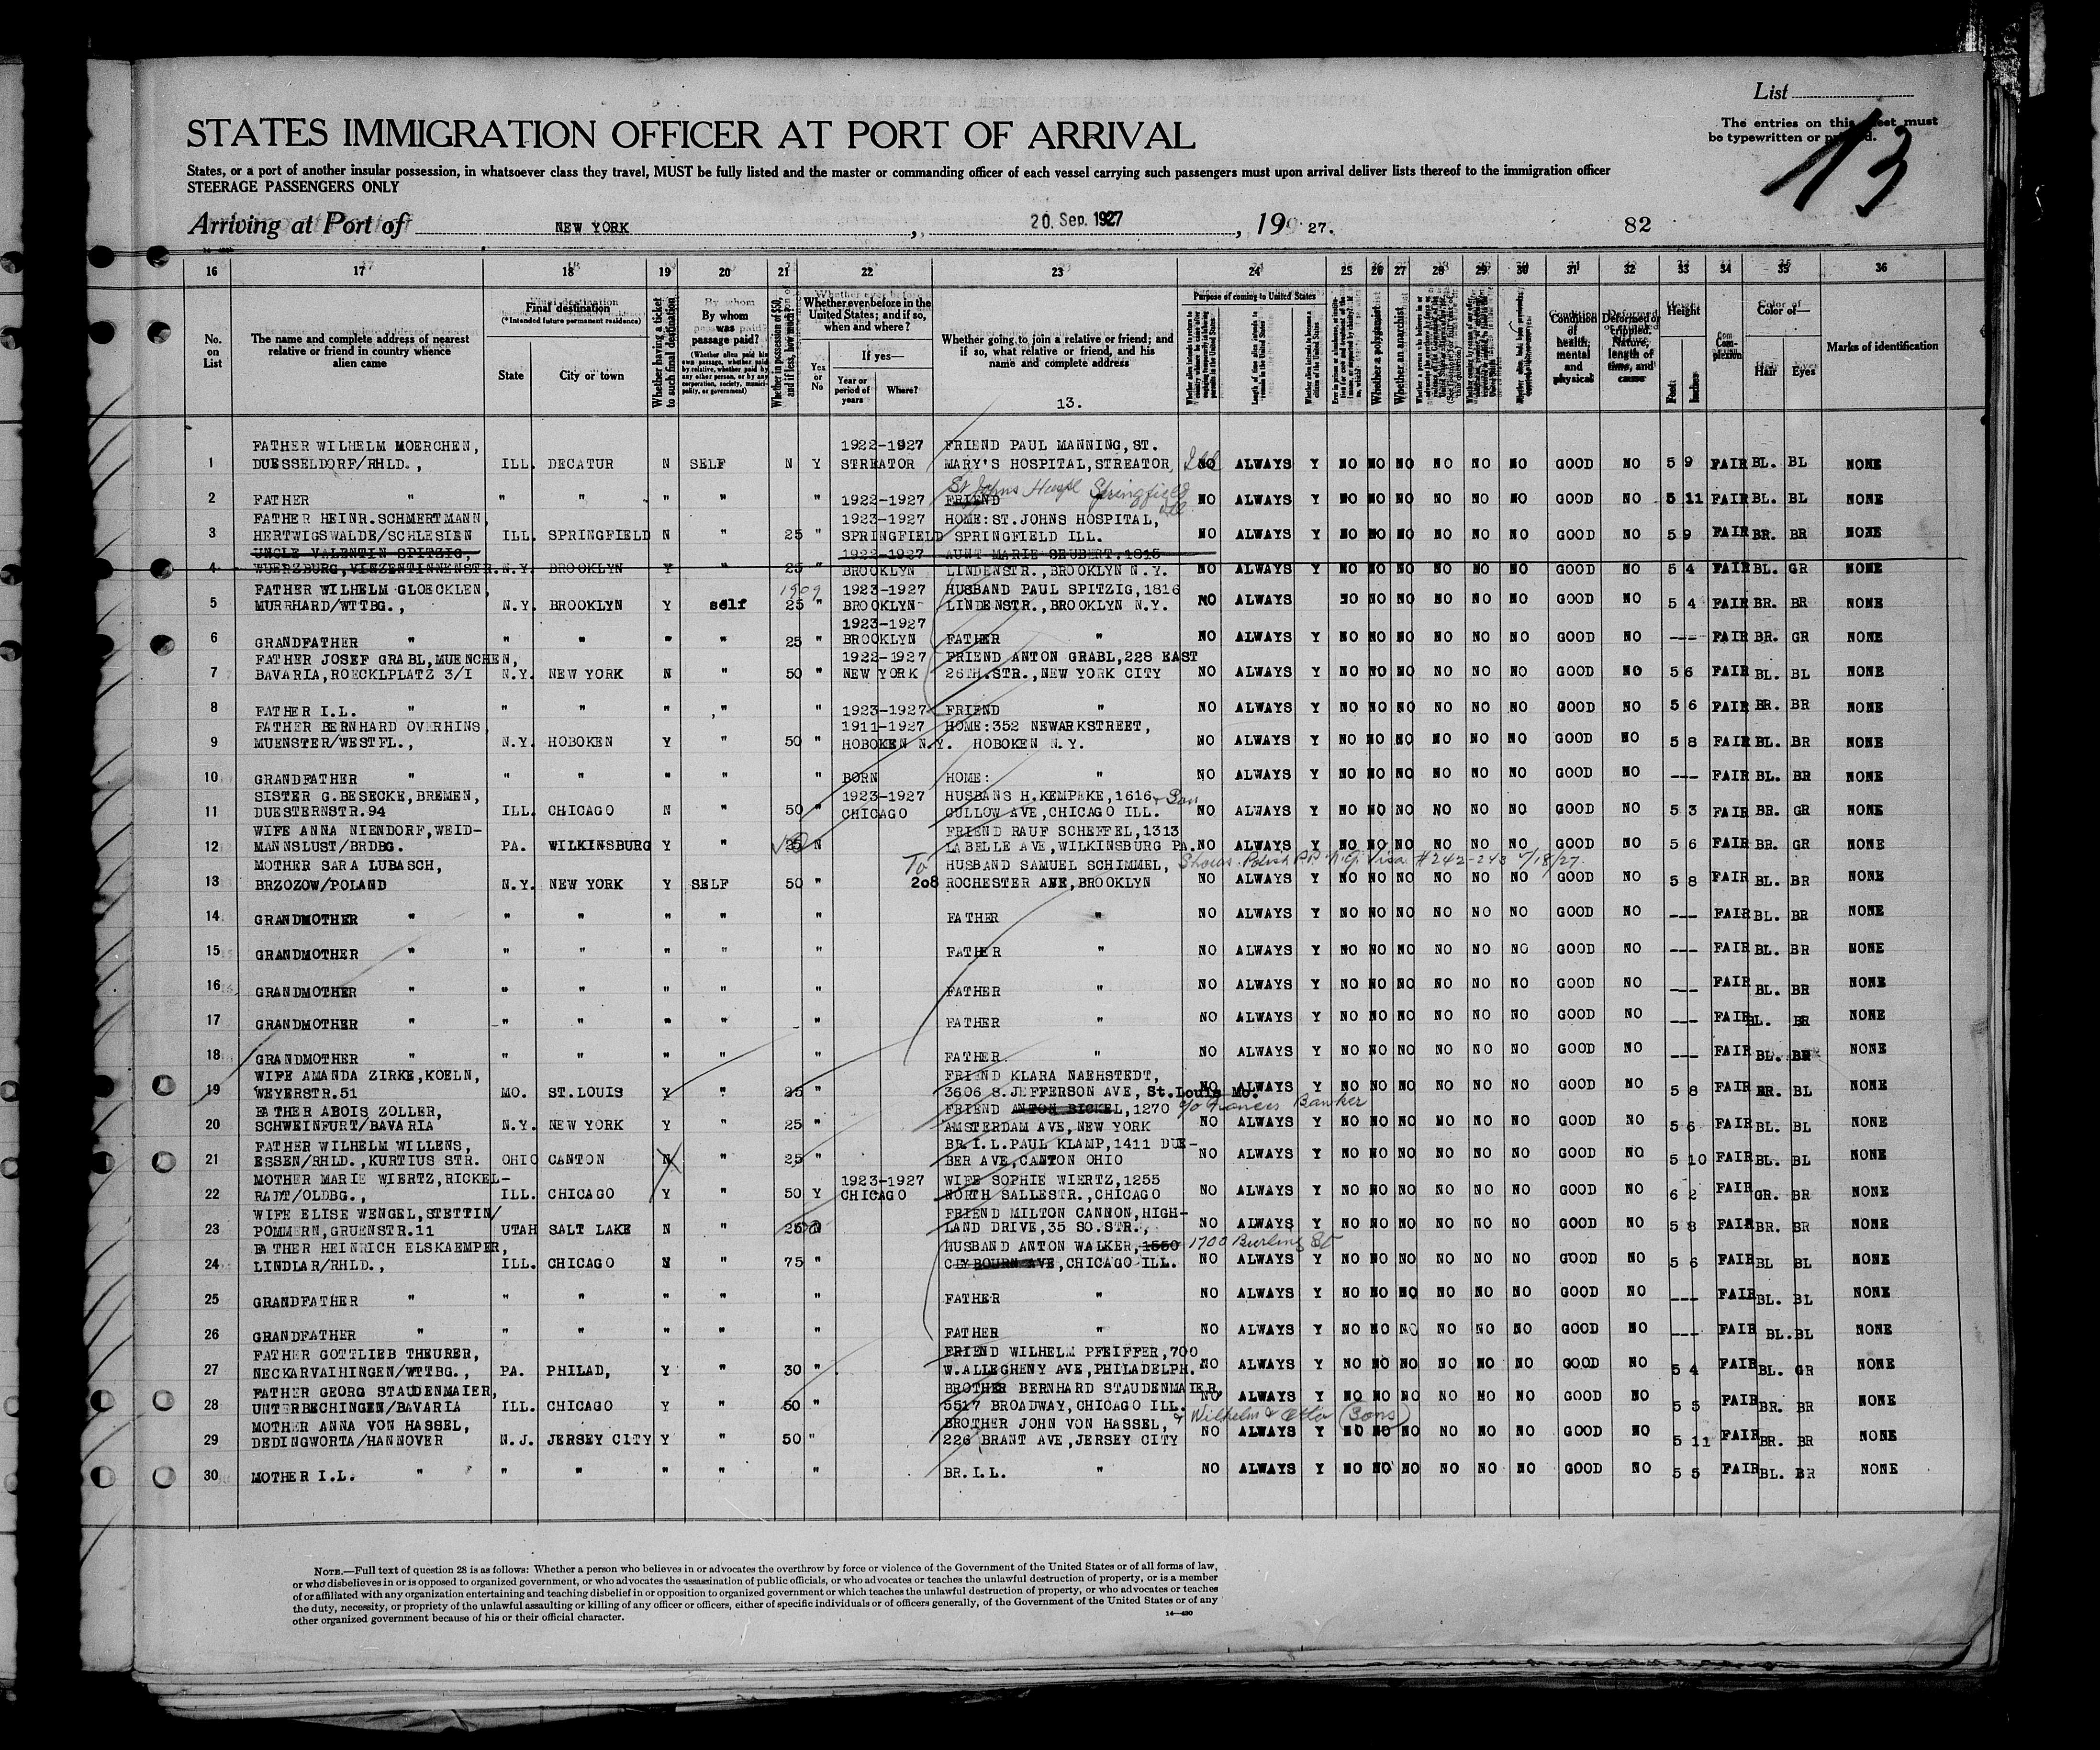 List
The entries on this sheet must
be typewritten or printed.
13
STATES IMMIGRATION OFFICER AT PORT OF ARRIVAL
States, or a port of another insular possession, in whatsoever class they travel, MUST be fully listed and the master or commanding officer of each vessel carrying such passengers must upon arrival deliver lists thereof to the immigration officer
STEERAGE PASSENGERS ONLY
Arriving at Port of NEW YORK, 20. Sep. 1927, 19 27. 82
16 17 18 19 20 21 22 23 24 25 26 27 28 29 30 31 32 33 34 35 36
No. on List
The name and complete address of nearest relative or friend in country whence alien came
Final destination
(*Intended future permanent residence)
State
City or town
Whether having a ticket to such final destination
By whom was passage paid?
(Whether alien paid his own passage, whether paid by relative, whether paid by any other person, or by any corporation, society, municipality, or government)
Whether in possession of $50, and if less, how much?
Whether ever before in the United States; and if so, when and where?
Yes or No
If yes—
Year or period of years
Where?
Whether going to join a relative or friend; and if so, what relative or friend, and his name and complete address
13.
Purpose of coming to United States
Whether a polygamist
Whether an anarchist
Condition of health, mental and physical
Deformed or crippled. Nature, length of time, and cause
Height
Feet
Inches
Complexion
Color of—
Hair
Eyes
Marks of identification
FATHER WILHELM MOERCHEN, 1922-1927 FRIEND PAUL MANNING, ST.
1 DUESSELDORF/RHLD., ILL. DECATUR N SELF N Y STREATOR MARY'S HOSPITAL, STREATOR, Ill NO ALWAYS Y NO NO NO NO NO NO GOOD NO 5 9 FAIR BL. BL NONE
St Johns Hospl Springfield Ill
2 FATHER " " " " " " 1922-1927 FRIEND NO ALWAYS Y NO NO NO NO NO NO GOOD NO 5 11 FAIR BL. BL NONE
FATHER HEINR. SCHMERTMANN, 1923-1927 HOME: ST. JOHNS HOSPITAL,
3 HERTWIGSWALDE/SCHLESIEN ILL. SPRINGFIELD N " 25 " SPRINGFIELD SPRINGFIELD ILL. NO ALWAYS Y NO NO NO NO NO NO GOOD NO 5 9 FAIR BR. BR NONE
UNCLE VALENTIN SPITZIG, 1922-1927 AUNT MARIE SEUBERT, 1815
4 WUERZBURG, VINZENTINNENSTR. N.Y. BROOKLYN Y " 25 " BROOKLYN LINDENSTR., BROOKLYN N.Y. NO ALWAYS Y NO NO NO NO NO NO GOOD NO 5 4 FAIR BL. GR NONE
FATHER WILHELM GLOECKLEN, 1909 1923-1927 HUSBAND PAUL SPITZIG, 1816
5 MURRHARD/WTTBG., N.Y. BROOKLYN Y self 25 " BROOKLYN LINDENSTR., BROOKLYN N.Y. NO ALWAYS NO NO NO NO NO NO GOOD NO 5 4 FAIR BR. BR NONE
1923-1927
6 GRANDFATHER " " " " " 25 " BROOKLYN FATHER " NO ALWAYS Y NO NO NO NO NO NO GOOD NO --- FAIR BR. GR NONE
FATHER JOSEF GRABL, MUENCHEN, 1922-1927 FRIEND ANTON GRABL, 228 EAST
7 BAVARIA, ROECKLPLATZ 3/I N.Y. NEW YORK N " 50 " NEW YORK 26TH. STR., NEW YORK CITY NO ALWAYS Y NO NO NO NO NO NO GOOD NO 5 6 FAIR BL. BL NONE
8 FATHER I.L. " " " " " " 1923-1927 FRIEND " NO ALWAYS Y NO NO NO NO NO NO GOOD NO 5 6 FAIR BR. BR NONE
FATHER BERNHARD OVERHINS, 1911-1927 HOME: 352 NEWARKSTREET,
9 MUENSTER/WESTFL., N.Y. HOBOKEN Y " 50 " HOBOKEN N.Y. HOBOKEN N.Y. NO ALWAYS Y NO NO NO NO NO NO GOOD NO 5 8 FAIR BL. BR NONE
10 GRANDFATHER " " " " " " BORN HOME: " NO ALWAYS Y NO NO NO NO NO NO GOOD NO --- FAIR BL. BR NONE
SISTER G. BESECKE, BREMEN, 1923-1927 HUSBANS H. KEMPEKE, 1616 + Son
11 DUESTERNSTR. 94 ILL. CHICAGO N " 50 " CHICAGO CULLOW AVE, CHICAGO ILL. NO ALWAYS Y NO NO NO NO NO NO GOOD NO 5 3 FAIR BR. GR NONE
WIFE ANNA NIENDORF, WEID- FRIEND RAUF SCHEFFEL, 1313
12 MANNSLUST/BRDBG. PA. WILKINSBURG Y " 25 N LABELLE AVE, WILKINSBURG PA. NO ALWAYS Y NO NO NO NO NO NO GOOD NO 5 6 FAIR BR. GR NONE
MOTHER SARA LUBASCH, To HUSBAND SAMUEL SCHIMMEL, Shows Polish P.P. n.q. Visa #242-243 7/18/27.
13 BRZOZOW/POLAND N.Y. NEW YORK Y SELF 50 " 208 ROCHESTER AVE, BROOKLYN NO ALWAYS Y NO NO NO NO NO NO GOOD NO 5 8 FAIR BL. BR NONE
14 GRANDMOTHER " " " " " " FATHER " NO ALWAYS Y NO NO NO NO NO NO GOOD NO --- FAIR BL. BR NONE
15 GRANDMOTHER " " " " " " FATHER " NO ALWAYS Y NO NO NO NO NO NO GOOD NO --- FAIR BL. BR NONE
16 GRANDMOTHER " " " " " " FATHER " NO ALWAYS Y NO NO NO NO NO NO GOOD NO --- FAIR BL. BR NONE
17 GRANDMOTHER " " " " " " FATHER " NO ALWAYS Y NO NO NO NO NO NO GOOD NO --- FAIR BL. BR NONE
18 GRANDMOTHER " " " " " " FATHER " NO ALWAYS Y NO NO NO NO NO NO GOOD NO --- FAIR BL. BR NONE
WIFE AMANDA ZIRKE, KOELN, FRIEND KLARA NAEHSTEDT,
19 WEYERSTR. 51 MO. ST. LOUIS Y " 25 " 3606 S. JEFFERSON AVE, St. Louis Mo. NO ALWAYS Y NO NO NO NO NO NO GOOD NO 5 8 FAIR BR. BL NONE
FATHER ABOIS ZOLLER, FRIEND ANTON BICKEL, 1270 c/o Frances Banker
20 SCHWEINFURT/BAVARIA N.Y. NEW YORK Y " 25 " AMSTERDAM AVE, NEW YORK NO ALWAYS Y NO NO NO NO NO NO GOOD NO 5 6 FAIR BL. BL NONE
FATHER WILHELM WILLENS, BR. I.L. PAUL KLAMP, 1411 DUE-
21 ESSEN/RHLD., KURTIUS STR. OHIO CANTON N " 25 " BER AVE, CANTON OHIO NO ALWAYS Y NO NO NO NO NO NO GOOD NO 5 10 FAIR BL. BL NONE
MOTHER MARIE WIERTZ, RICKEL- 1923-1927 WIFE SOPHIE WIERTZ, 1255
22 RADT/OLDBG., ILL. CHICAGO Y " 50 Y CHICAGO NORTH SALLESTR., CHICAGO NO ALWAYS Y NO NO NO NO NO NO GOOD NO 6 2 FAIR GR. BR NONE
WIFE ELISE WENGEL, STETTIN/ FRIEND MILTON CANNON, HIGH-
23 POMMERN, GRUENSTR. 11 UTAH SALT LAKE N " 25 N LAND DRIVE, 35 SO. STR., NO ALWAYS Y NO NO NO NO NO NO GOOD NO 5 8 FAIR BR. BR NONE
FATHER HEINRICH ELSKAEMPER, HUSBAND ANTON WALKER, 1550 1700 Burling St
24 LINDLAR/RHLD., ILL. CHICAGO N " 75 " CLYBOURN AVE, CHICAGO ILL. NO ALWAYS Y NO NO NO NO NO NO GOOD NO 5 6 FAIR BL BL NONE
25 GRANDFATHER " " " " " " FATHER " NO ALWAYS Y NO NO NO NO NO NO GOOD NO --- FAIR BL. BL NONE
26 GRANDFATHER " " " " " " FATHER " NO ALWAYS Y NO NO NO NO NO NO GOOD NO --- FAIR BL. BL NONE
FATHER GOTTLIEB THEURER, FRIEND WILHELM PFEIFFER, 700
27 NECKARVAIHINGEN/WTTBG., PA. PHILAD, Y " 30 " W. ALLEGHENY AVE, PHILADELPH. NO ALWAYS Y NO NO NO NO NO NO GOOD NO 5 4 FAIR BL. GR NONE
FATHER GEORG STAUDENMAIER, BROTHER BERNHARD STAUDENMAIER,
28 UNTERBECHINGEN/BAVARIA ILL. CHICAGO Y " 50 " 5517 BROADWAY, CHICAGO ILL. NO ALWAYS Y NO NO NO NO NO NO GOOD NO 5 5 FAIR BR. BR NONE
MOTHER ANNA VON HASSEL, BROTHER JOHN VON HASSEL, & Wilhelm & Otto (Sons)
29 DEDINGWORTA/HANNOVER N.J. JERSEY CITY Y " 50 " 226 BRANT AVE, JERSEY CITY NO ALWAYS Y NO NO NO NO NO NO GOOD NO 5 11 FAIR BR. BR NONE
30 MOTHER I.L. " " " " " " BR. I.L. " NO ALWAYS Y NO NO NO NO NO NO GOOD NO 5 5 FAIR BL. BR NONE
NOTE.—Full text of question 28 is as follows: Whether a person who believes in or advocates the overthrow by force or violence of the Government of the United States or of all forms of law,
or who disbelieves in or is opposed to organized government, or who advocates the assassination of public officials, or who advocates or teaches the unlawful destruction of property, or is a member
of or affiliated with any organization entertaining and teaching disbelief in or opposition to organized government or which teaches the unlawful destruction of property, or who advocates or teaches
the duty, necessity, or propriety of the unlawful assaulting or killing of any officer or officers, either of specific individuals or of officers generally, of the Government of the United States or of any
other organized government because of his or their official character.
14—430